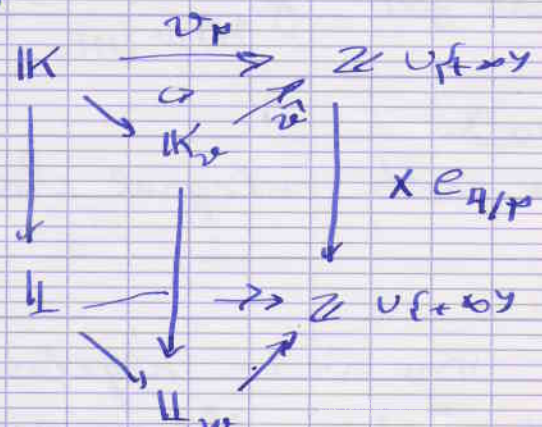 v_p
𝕂 ℤ ∪ {+∞}
𝕂_v v̂
× e_{q/p}
𝕃 ℤ ∪ {+∞}
𝕃_w